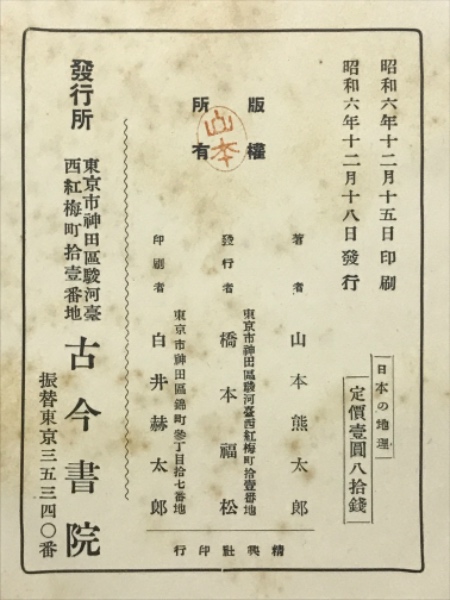 昭和六年十二月十五日印刷
昭和六年十二月十八日發行
日本の地理
定價壹圓八拾錢
版權
所有
山本
著者 山本熊太郎
東京市神田區駿河臺西紅梅町拾壹番地
發行者 橋本福松
東京市神田區錦町參丁目拾七番地
印刷者 白井赫太郎
精興社印行
發行所
東京市神田區駿河臺
西紅梅町拾壹番地
古今書院
振替東京三五三四〇番